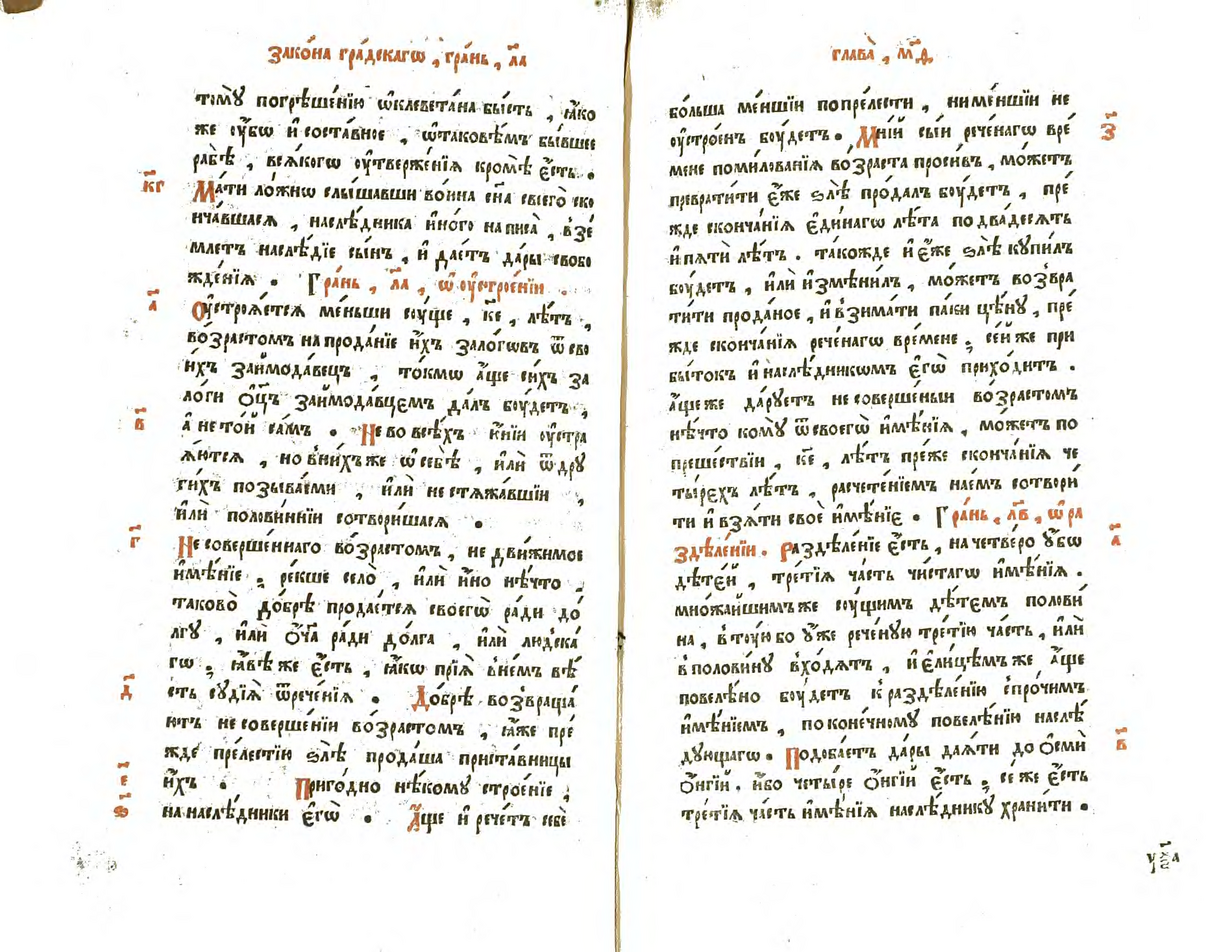 Зако́на гра́дскагѡ , гра́нь , л҃а
тому̀ погрѣше́нїю ѡ҆клевета́на бы́сть , ꙗ҆́ко
же ᲂу҆́бѡ и҆ соста́вное , ѡ҆тако́вѣмъ бы́вшее
рабѣ̀ , вся́когѡ ᲂу҆твержє́нїя кромѣ̀ є҆́сть .
к҃г
Ма́ти ло́жнѡ слы́шавши во́ина сн҃а своего̀ ско
нча́вшася , наслѣ́дника и҆но́го написа̀ , взе́
млетъ наслѣ́дїе сы́нъ , и҆ дае́тъ да́ры свобо
жде́нїя . Гра́нь , л҃а , ѡ҆ ᲂу҆строе́нїи .
а҃
Оу҆строѧ́ется ме́ньши су́ще , к҃е , лѣ́тъ ,
во́зрастомъ на прода́нїе и҆́хъ зало́говъ ѿ сво
и́хъ займода́вецъ , то́кмѡ а҆́ще си́хъ за
ло́ги ѻ҆ц҃ъ займода́вцемъ да́лъ бу́детъ ,
а҆ не то́й са́мъ . Не во всѣ́хъ и҆нїи ᲂу҆стра
в҃
ѧ́ются , но в ни́хъ же ѡ҆ себѣ̀ , и҆лѝ ѿ дру
ги́хъ позыва́еми , и҆лѝ не стѧжа́вшїи ,
и҆лѝ поло́виннїи сотвори́шася .
г҃
Не соверше́ннаго во́зрастомъ , не дви́жимое
и҆мѣ́нїе , ре́кше село̀ , и҆лѝ и҆́но нѣ́что ,
таково̀ до́брѣ прода́стся своегѡ̀ ра́ди до́
лгу , и҆лѝ ѻ҆́ч҃а ра́ди до́лга , и҆лѝ лю́дска
гѡ , ꙗ҆́вѣ же є҆́сть , ꙗ҆́кѡ прїѧ̀ в не́мъ вѣ́
сть судїѧ̀ ѿрече́нїя . До́брѣ возвраща́
д҃
ютъ не соверше́нїи во́зрастомъ , ꙗ҆́же пре́
жде пре́лестїю ѕлѣ̀ прода́ша приста́вницы
и҆́хъ . Приго́дно нѣ́кому строе́нїе ,
е҃
на наслѣ́дники є҆гѡ̀ . А҆́ще и҆ рече́тъ себѐ
ѕ҃
глава̀ , м҃д
бо́льша ме́ншїи по пре́лести , ни ме́ншїи не
ᲂу҆стро́енъ бу́детъ . Мні́й сы́й рече́нагѡ вре́
з҃
мене поми́лованїя во́зраста проси́въ , мо́жетъ
преврати́ти є҆́же ѕлѣ̀ про́далъ бу́детъ , пре́
жде сконча́нїя є҆ди́нагѡ лѣ́та по два́десѧть
и҆ пѧти́ лѣ́тъ . тако́жде и҆ є҆́же ѕлѣ̀ купи́лъ
бу́детъ , и҆лѝ и҆змѣни́лъ , мо́жетъ возвра
ти́ти про́даное , и҆ взима́ти па́ки цѣ́ну , пре́
жде сконча́нїя рече́нагѡ вре́мене , се́й же при
бы́токъ и҆ наслѣ́дникѡмъ є҆гѡ̀ прихо́дитъ .
А҆́ще же да́руетъ не соверше́ныи во́зрастомъ
нѣ́что кому̀ ѿ своегѡ̀ и҆мѣ́нїя , мо́жетъ по
преше́ствїи , к҃е , лѣ́тъ пре́же сконча́нїя че
ты́рехъ лѣ́тъ , расчете́нїемъ нае́мъ сотвори́
ти и҆ взѧ́ти своѐ и҆мѣ́нїе . Гра́нь , л҃в , ѡ҆ ра
здѣле́нїи . Раздѣле́нїе є҆́сть , на че́тверо ᲂу҆́бѡ
а҃
дѣте́й , тре́тїя ча́сть чи́стагѡ и҆мѣ́нїя .
мно́жайшимъ же су́щимъ дѣ́темъ полови́
на , в ту́ю бо ᲂу҆же рече́ную тре́тїю ча́сть , и҆лѝ
в полови́ну вхо́дѧтъ , и҆ є҆ли́цѣмъ же а҆́ще
повелѣ́но бу́детъ к раздѣле́нїю с про́чимъ
и҆мѣ́нїемъ , по коне́чному повелѣ́нїю наслѣ́
дующагѡ . Подоба́етъ да́ры даѧ́ти до ѻ҆сми́
в҃
ѻ҆нгі́й . и҆́бо четы́ре ѻ҆нгі́й є҆́сть , се́ же є҆́сть
тре́тїя ча́сть и҆мѣ́нїя наслѣ́днику храни́ти .